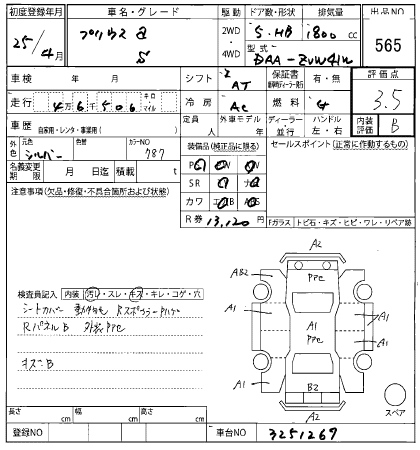 初度登録年月 車名・グレード 駆動 ドア数・形状 排気量 出品NO
25年4月 プリウスα S 2WD・4WD 5・HB 1800cc 565
型式 DAA-ZVW41W
車検 年 月 シフト AT 保証書 有・無 評価点
走行 4万6千506 キロ・マイル 冷房 AC 燃料 3.5
車歴 自家用・レンタ・事業用( ) 乗車定員 外車モデル年 ディーラー・並行 ハンドル 左・右 内装評価 B
外色 元色 シルバー 色替 カラーNO 787 装備品(純正品に限る) セールスポイント(正常に作動するもの)
名義変更期限 月 日迄 積載 t
SR ナビ
カワ エアB ABS
注意事項(欠品・修復・不具合箇所および状態) R券 13,120 Fガラス トビ石・キズ・ヒビ・ワレ・リペア跡
A2
AB2 PPC
A1 A1
A1 PPC
A1
A1 B2 A1
A2
スペア
検査員記入 内装 汚れ・スレ・キズ・キレ・コゲ・穴
シートカバー
RパネルB 外装PPC
キズ=B
長さ cm 幅 cm 高さ cm
登録NO 車台NO 3251267